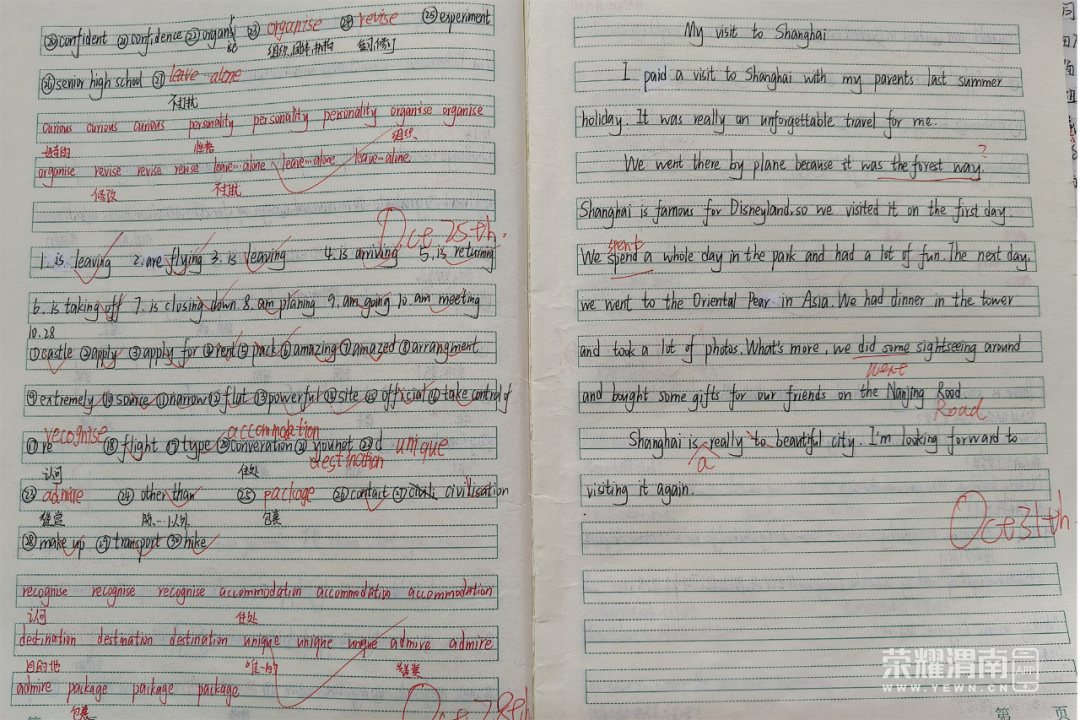 ⑳confident ㉑confidence ㉒organise ㉓ organise ㉔ revise ㉕experiment
组织,团体,机构 复习,修订
㉖senior high school ㉗ leave alone
不打扰
curious curious curious personality personality personality organise organise
好奇的 性格 组织
organise revise revise revise leave…alone leave…alone leave…alone
修改 不打扰
Oct 25th.
1. is leaving 2. are flying 3. is leaving 4. is arriving 5. is returning
6. is taking off 7. is closing down. 8. am planing 9. am going 10. am meeting
10.28
①castle ②apply ③apply for ④rent ⑤pack ⑥amazing ⑦amazed ⑧arrangment
⑨extremely ⑩source ⑪narrow ⑫flat ⑬powerful ⑭site ⑮official ⑯take control of
recognise accommodation
⑰re ⑱flight ⑲type ⑳converation ㉒d unique
destination
认可 住处
㉓ admire ㉔ other than ㉕ package ㉖contact ㉗civili civilisation
赞赏 除…以外 包裹
㉘make up ㉙transport ㉚hike
recognise recognise recognise accommodation accommodation accommodation
认可 住处
destination destination destination unique unique unique admire admire
目的地 唯一的 赞赏
admire package package package
包裹
Oct 28th
My visit to Shanghai
I paid a visit to Shanghai with my parents last summer
holiday. It was really an unforgettable travel for me.
We went there by plane because it was the forest way.
?
Shanghai is famous for Disneyland, so we visited it on the first day.
spent
We spend a whole day in the park and had a lot of fun. The next day,
we went to the Oriental Pear in Asia. We had dinner in the tower
and took a lot of photos. What's more, we did some sightseeing around
went
and bought some gifts for our friends on the Nanjing Rood.
Road
Shanghai is really to beautiful city. I'm looking forward to
a
visiting it again.
Oct 31th.
荣耀渭南 APP
WWW.YEWN.CN
第 页